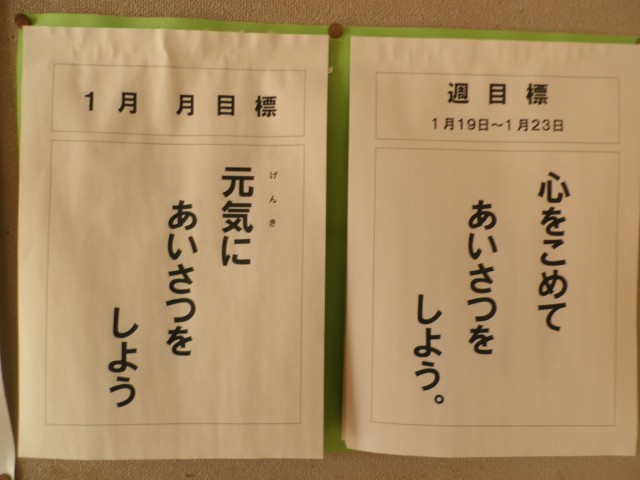 1月 月目標
元気に
げんき
あいさつを
しよう
週目標
1月19日～1月23日
心をこめて
あいさつを
しよう。